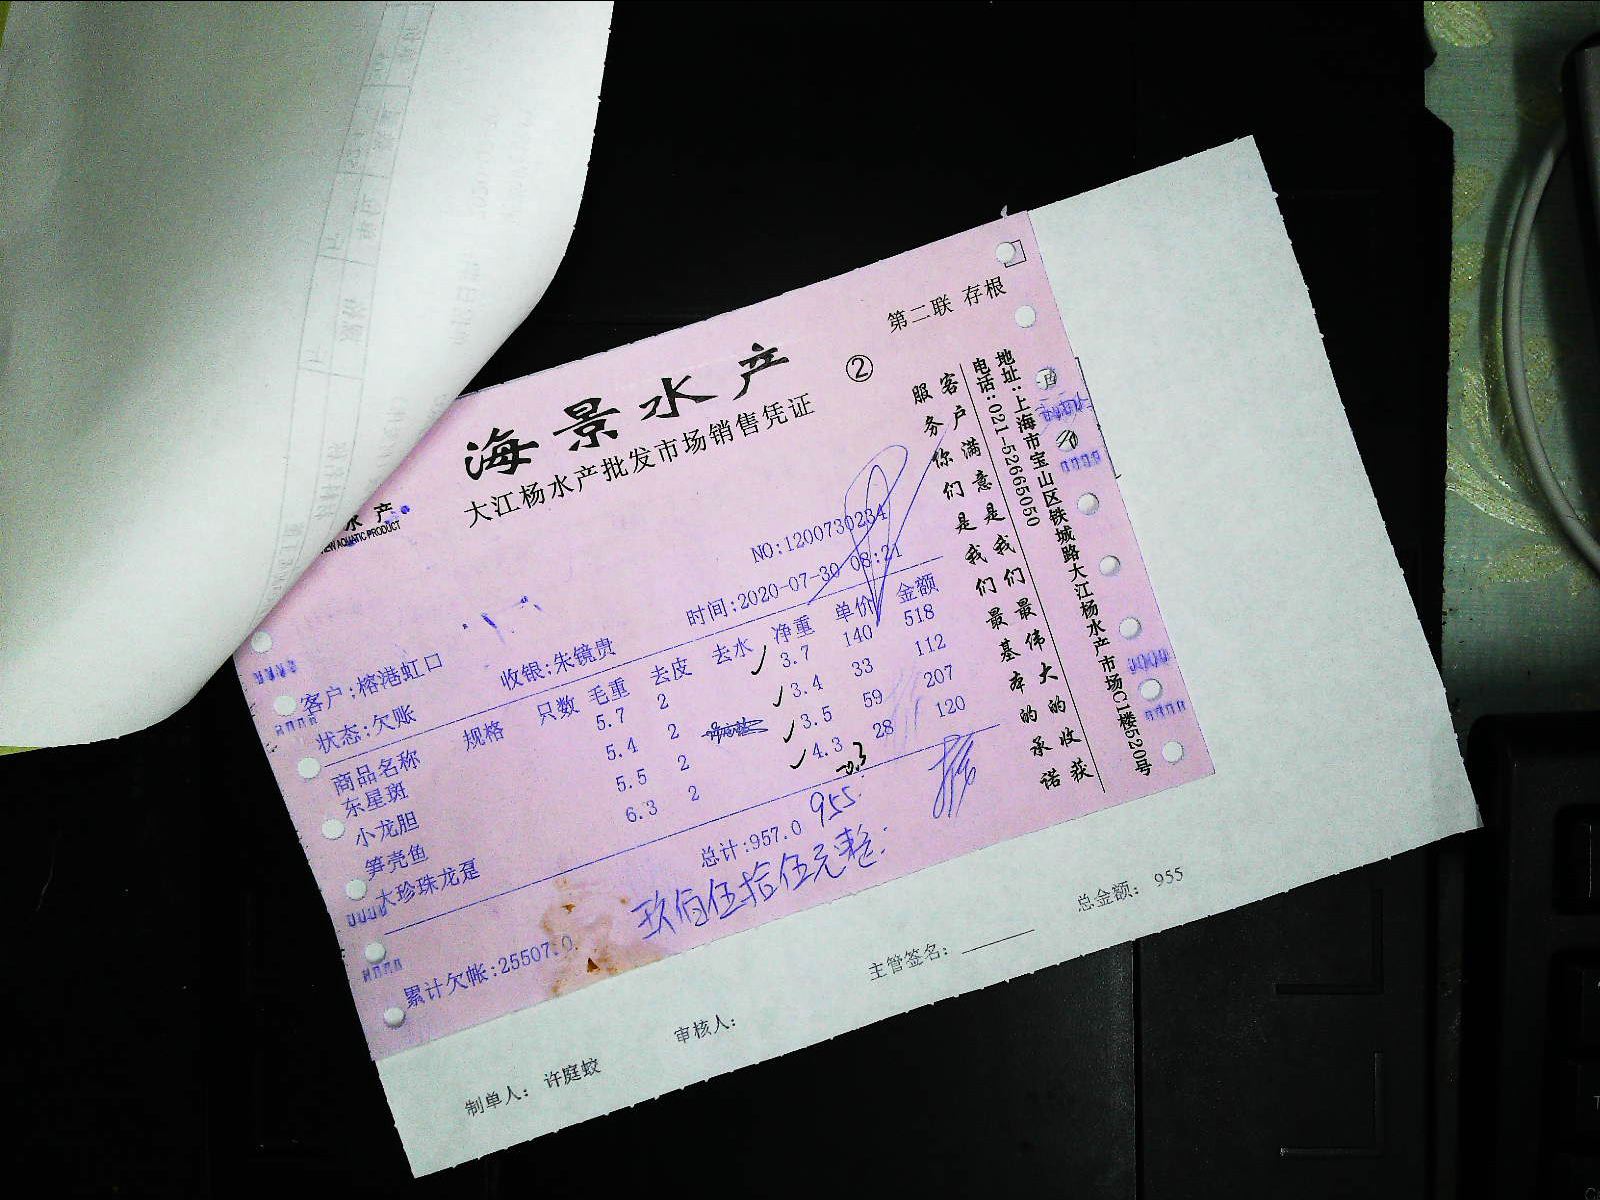 第二联 存根
海景水产
②
大江杨水产批发市场销售凭证
水产
NEW AQUATIC PRODUCT
NO:1200730234
时间:2020-07-30 08:21
客户:榕港虹口
收银:朱镜贵
状态:欠账
商品名称 规格 只数 毛重 去皮 去水 净重 单价 金额
东星斑 5.7 2 3.7 140 518
小龙胆 5.4 2 3.4 33 112
笋壳鱼 5.5 2 3.5 59 207
大珍珠龙趸 6.3 2 4.3 28 120
-0.3
总计:957.0 955.
玖佰伍拾伍元整.
累计欠帐:25507.0
客户满意是我们最伟大的收获
服务你们是我们最基本的承诺
地址:上海市宝山区铁城路大江杨水产市场C1楼520号
电话:021-52665050
总金额: 955
主管签名:
审核人:
制单人: 许庭蛟